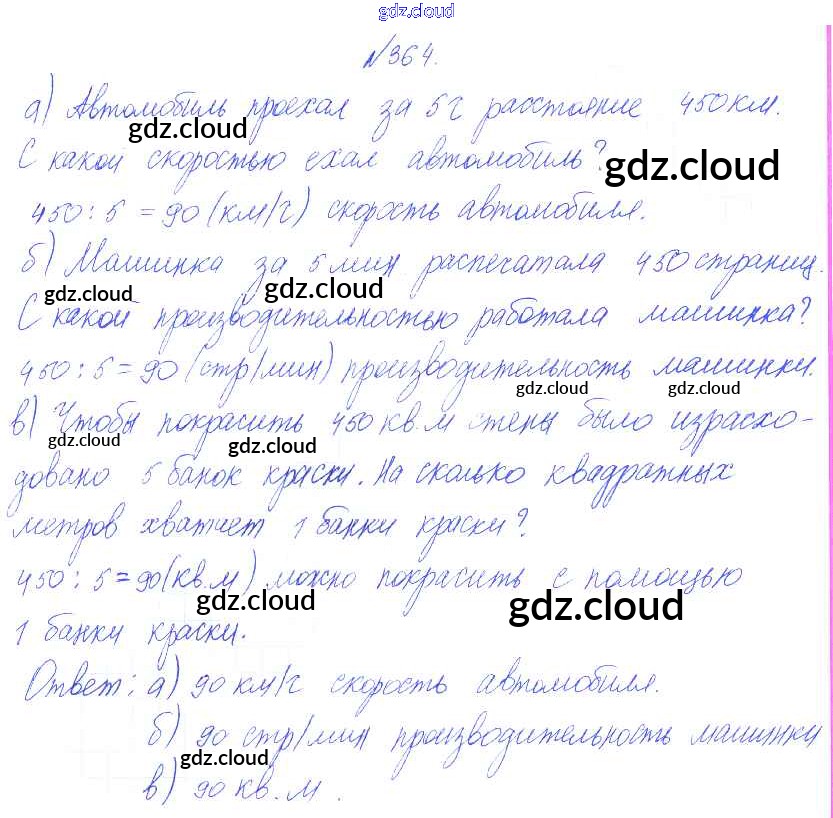 gdz.cloud
№364.
а) Автомобиль проехал за 5 г расстояние 450 км.
gdz.cloud
С какой скоростью ехал автомобиль?
gdz.cloud
450 : 5 = 90 (км/г) скорость автомобиля.
б) Машинка за 5 мин распечатала 450 страниц.
gdz.cloud gdz.cloud
С какой производительностью работала машинка?
450 : 5 = 90 (стр/мин) производительность машинки.
gdz.cloud gdz.cloud
в) Чтобы покрасить 450 кв.м стены было израсхо-
gdz.cloud gdz.cloud
довано 5 банок краски. На сколько квадратных
метров хватит 1 банки краски?
450 : 5 = 90 (кв.м) можно покрасить с помощью
gdz.cloud gdz.cloud
1 банки краски.
Ответ: а) 90 км/г скорость автомобиля.
б) 90 стр/мин производительность машинки
gdz.cloud
в) 90 кв.м.